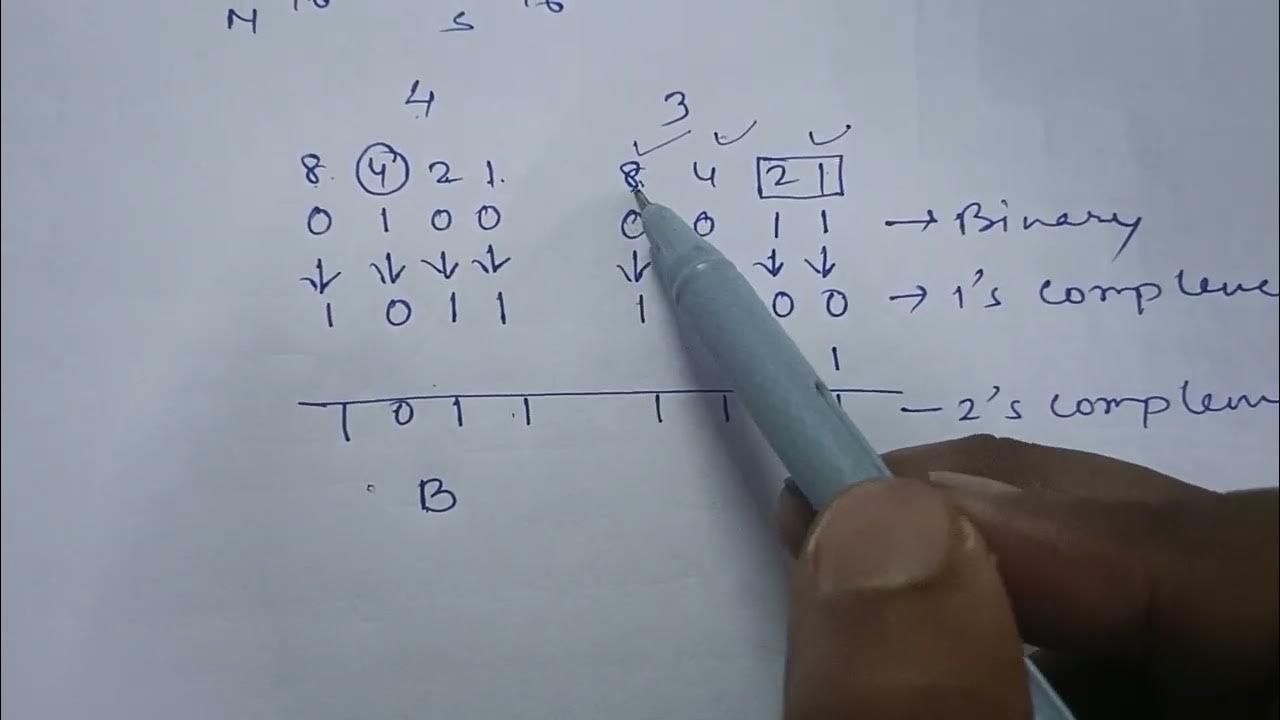 M S
4 3
8 4 2 1 8 4 2 1
0 1 0 0 0 0 1 1 → Binary
↓ ↓ ↓ ↓ ↓ ↓ ↓
1 0 1 1 1 0 0 → 1's compleme
1
1 0 1 1 1 1 1 - 2's complem
B